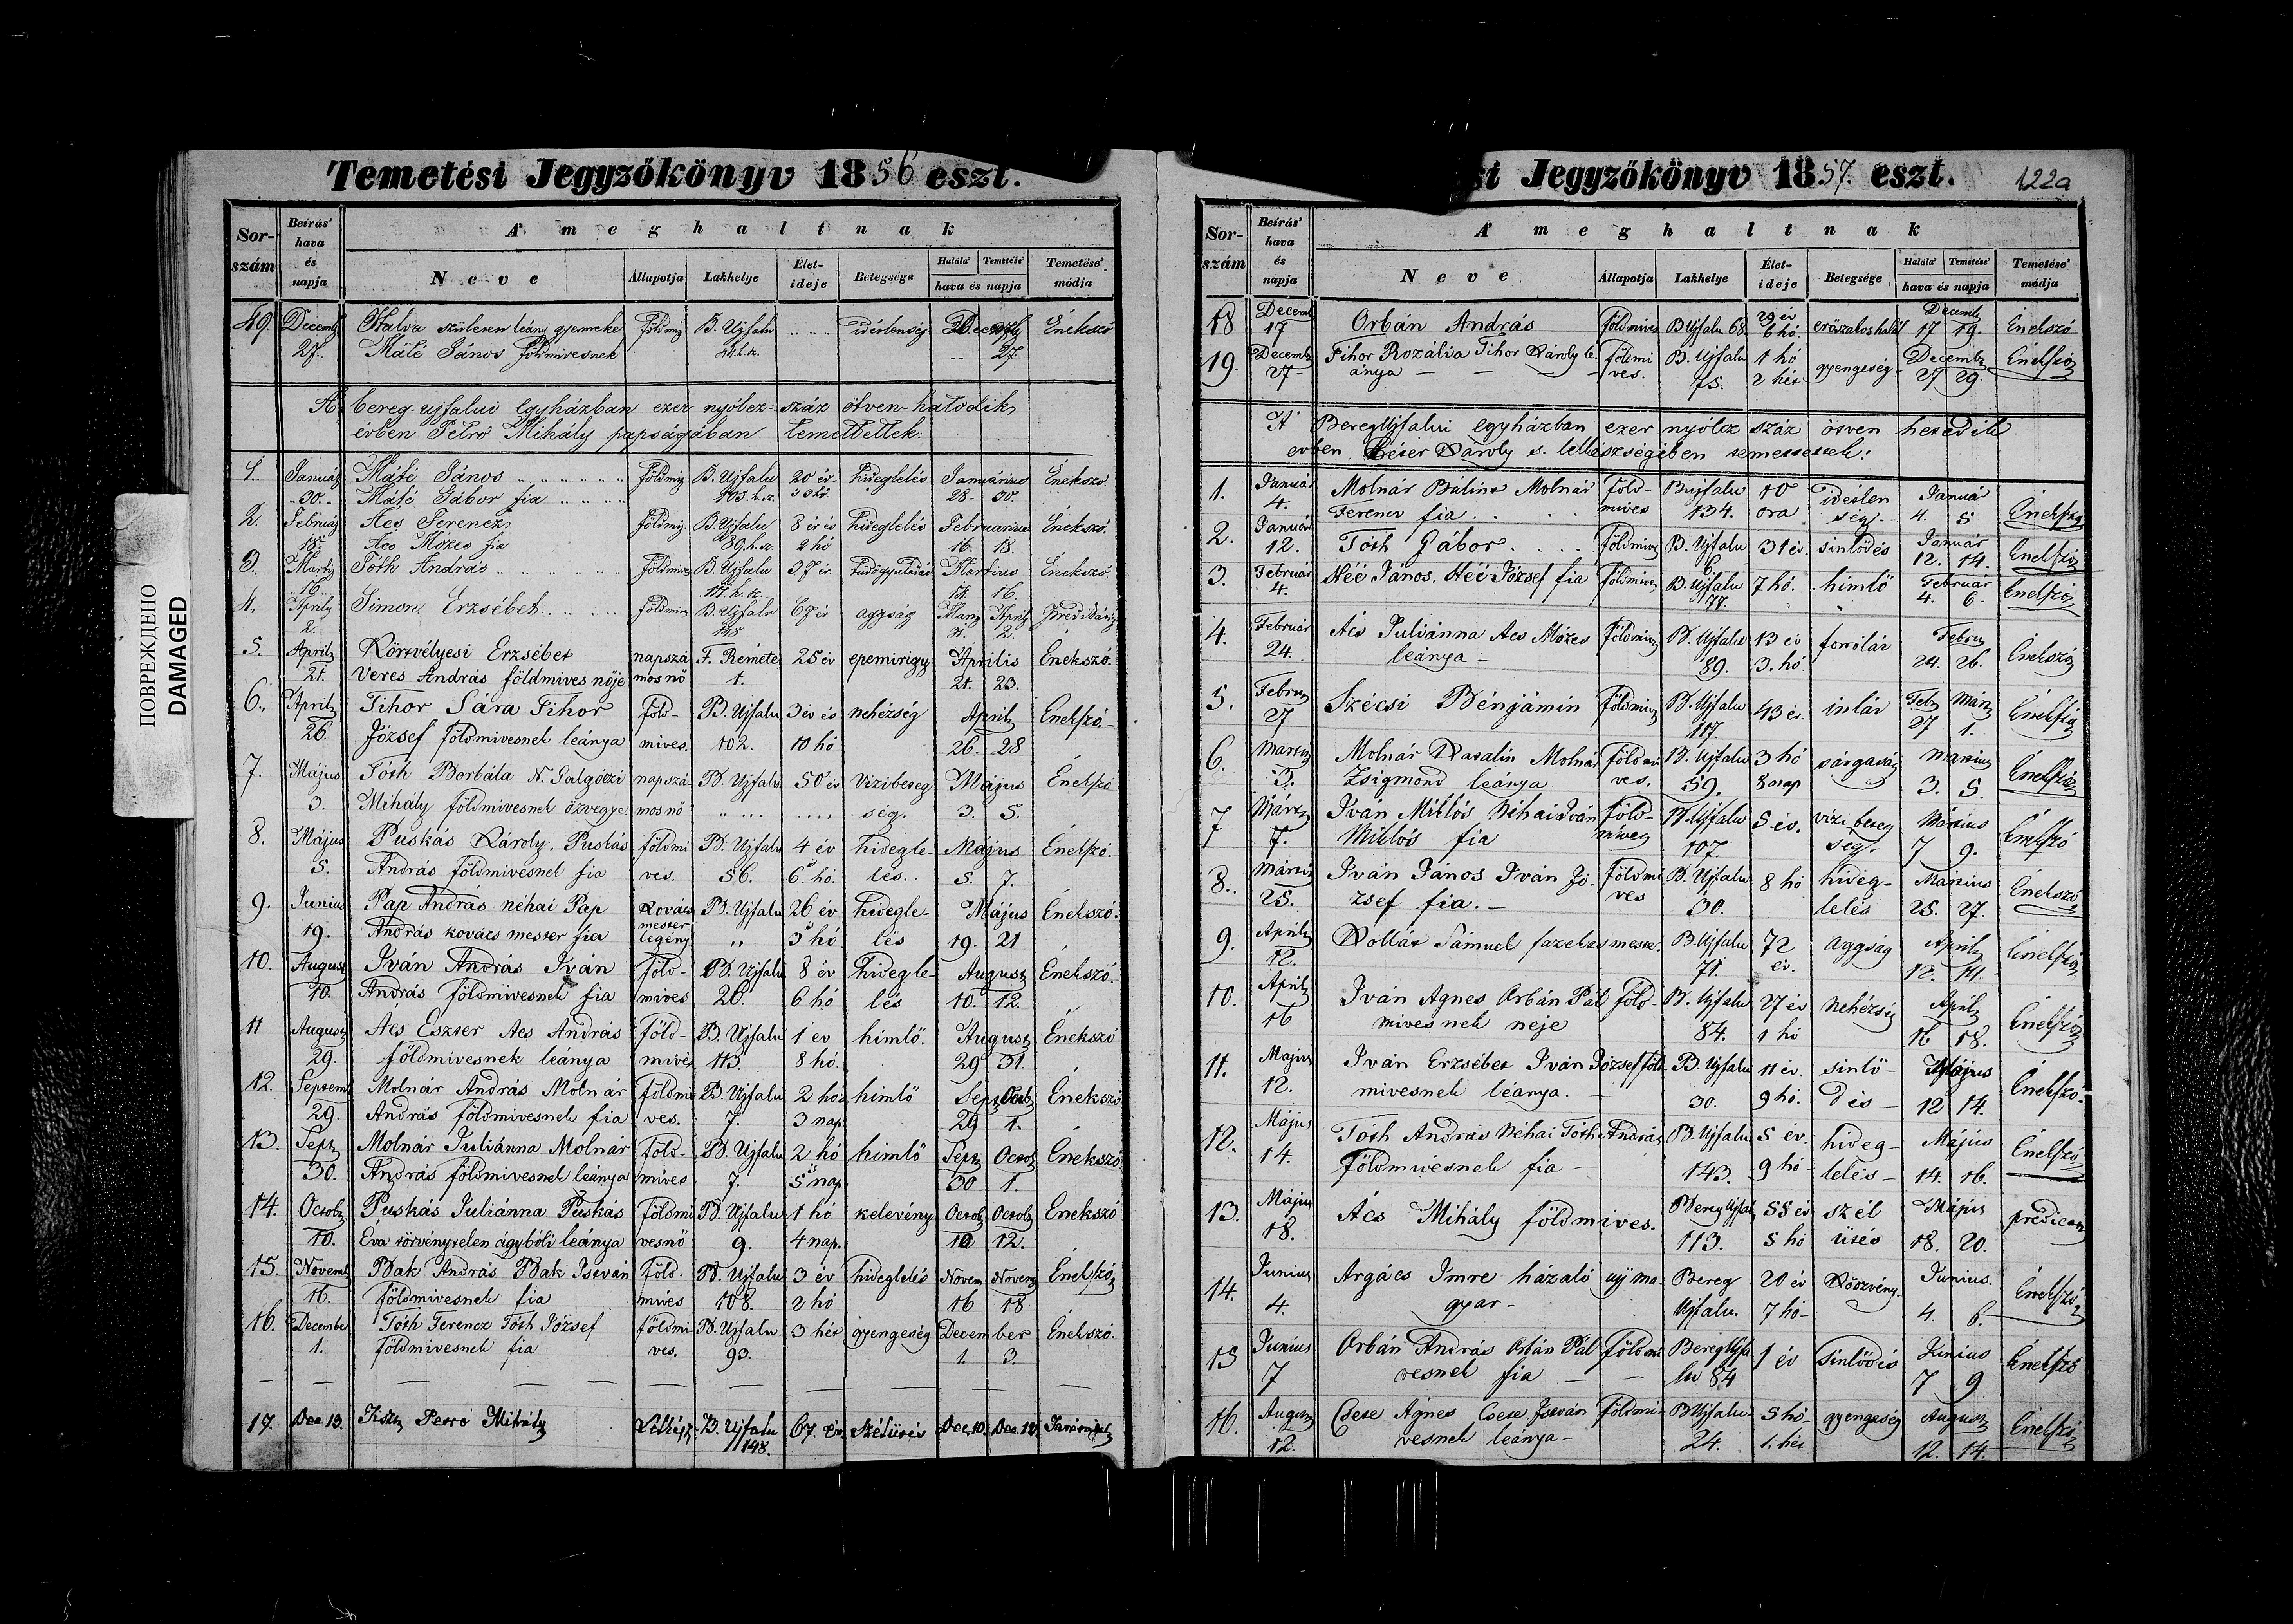 Temetési Jegyzőkönyv 1856 eszt.
Sor-szám
Beírás' hava és napja
A' meghaltnak
Neve
Állapotja
Lakhelye
Élet-ideje
Betegsége
Halála' Temetése' hava és napja
Temetése' módja
49. Decemb 27. Halva született leány gyermeke földmiv B. Ujfalu idétlenség Decemb 27. Énekszó
Máté János földmivesnek
A bereg-ujfalui egyházban ezer nyolcz-száz ötven-hatodik
évben Petro Mihály papságában temettettek:
1. Január 30. Máté János földmiv B. Ujfalu 20 év hideglelés Januárius 28. 30. Énekszó
Máté Gábor fia
2. Február 18. Acs Ferencz földmiv. B. Ujfalu 89. h. sz. 8 év és 2 hó hideglelés Februarius 16. 18. Énekszó.
Acs Mózes fia
3. Martz 16. Tóth András földmives B. Ujfalu 37 év. tüdőgyuladás Martius 16. Énekszó.
4. April 2. Simon Erzsébet földmiv B. Ujfalu 67 év aggság Marz April 2.
5. April 21. Körtvélyesi Erzsébet napszá F. Remete 25 év epemirigy Aprilis Énekszó.
Veres András földmives nője mos nő 1. 21. 23.
6. April 26. Tihor Sára Tihor föld- B. Ujfalu 3 év és nehézség April Énekszó.
József földmivesnek leánya mives. 102. 10 hó 26. 28
7. Május 3. Tóth Borbála N. Galgóczi napszá- B. Ujfalu 50 év Vizibeteg Május Énekszó
Mihály földmivesnek özvegye mos nő ség. 3. 5.
8. Május 5. Puskás Károly, Puskás földmi B. Ujfalu 4 év hidegle- Május Énekszó.
András földmivesnek fia ves. 56. 6. hó. lés. 5. 7.
9. Junius 19. Pap András néhai Pap Kovács B. Ujfalu 26 év hidegle- Május Énekszó.
András kovács mester fia mester legény " 3 hó lés 19. 21
10. August 10. Iván András Iván föld- B. Ujfalu 8 év hidegle- August Énekszó.
András földmivesnek fia mives 26. 6 hó lés 10. 12.
11 August 29. Acs Eszter Acs András föld- B. Ujfalu 1 év himlő. August Énekszó
földmivesnek leánya mives 113. 8 hó. 29 31.
12. Septemb 29. Molnár András Molnár földmi B. Ujfalu 2 hó himlő Sept Octob Énekszó
András földmivesnek fia ves. 7. 3 nap 29 1.
13. Sept 30. Molnár Juliánna Molnár föld- B. Ujfalu 2 hó himlő Sept Octob Énekszó
András földmivesnek leánya mives 7. 5 nap 30 1.
14. Octob 10. Puskás Juliánna Puskás földmi B. Ujfalu 1 hó kelevény Octob Octob Énekszó
Éva törvénytelen ágyból leánya vesnő 9. 4 nap. 10 12.
15. Novemb 16. Bak András Bak István föld- B. Ujfalu 3 év hideglelés Novem Novem Énekszó
földmivesnek fia mives 108. 2 hó 16 18
16. December 1. Tóth Ferencz Tóth József földmi- B. Ujfalu 3 hét gyengeség December Énekszó.
földmivesnek fia ves. 93. 1. 3.
17. Dec 13. Petró Mihály Lelkész B. Ujfalu 148. 67. év Szélütés Dec. 10. Dec. 12
Jegyzőkönyv 1857. eszt.
122a
Sor-szám
Beírás' hava és napja
A' meghaltnak
Neve
Állapotja
Lakhelye
Élet-ideje
Betegsége
Halála' Temetése' hava és napja
Temetése' módja
18 Decemb 17 Orbán András földmives B Ujfalu 68. 29 év 6 hó. erőszakos halál Decemb 17 19. Énekszó
19. Decemb 27 Tihor Rozália Tihor Károly le földmi B. Ujfalu 1 hó gyengeség Decemb Énekszó
ánya ves. 75. 2 hét 27 29.
A' BeregUjfalui egyházban ezer nyólcz száz ötven hetedik
evben Péter Károly s. lelkészségében temettettek:
1. Január 4. Molnár Bálint Molnár föld- Bujfalu 10 idétlen Január Énekszó
Ferencz fia. mives 134. óra ség. 4. 5
2. Január 12. Tóth Gábor földmives B. Ujfalu 6. 31 év. sinlődés Január 12. 14. Énekszó
3. Február 4. Héé János, Héé József fia földmives B. Ujfalu 77. 7 hó. himlő Február 4. 6. Énekszó
4. Február 24. Ács Juliánna Acs Mózes földmives B. Ujfalu 13 év forróláz Febru Énekszó
leánya 89. 3. hó. 24. 26.
5. Febru 27 Szécsi Bénjámin földmives B. Ujfalu 117. 43 év. inláz Febr 27 Márz 1. Énekszó
6. Martz 3. Molnár Katalin Molnár földmi B. Ujfalu 3 hó sárgaság Martius Énekszó
Zsigmond leánya ves. 59. 8 nap 3. 5.
7 Márt 7. Iván Miklós Néhai Iván föld- B. Ujfalu 5 év. vizi beteg Mártius Énekszó
Miklós fia mives 107. ség. 7 9.
8. Márt 25. Iván János Iván Jó- földmi B. Ujfalu 8 hó hideg- Mártius Énekszó
zsef fia. ves 30. lelés 25. 27.
9. April 12. Kollát Sámuel fazekas mester. B. Ujfalu 71. 72 év. aggság April 12. 14. Énekszó
10. April 16 Iván Agnes Orbán Pál föld- B. Ujfalu 27 év nehézség April Énekszó
mivesnek neje 84. 1 hó 16 18.
11. Május 12. Iván Erzsébet Iván József föld- B. Ujfalu 11 év. sinlő- Május Énekszó.
mivesnek leánya. 30. 9 hó. dés 12 14.
12. Május 14. Tóth András Néhai Tóth András B. Ujfalu 5 év. hideg- Május Énekszó
földmivesnek fia 143. 9 hó lelés 14. 16.
13. Május 18. Ács Mihály földmives. Bereg Ujfal 113. 55 év 5 hó szél ütés Május 18. 20.
14. Junius 4. Argács Imre házaló uj ma- Bereg 20 év Köszvény Junius. Énekszó
gyar Ujfalu. 7 hó 4. 6.
15 Június 7 Orbán András Orbán Pál földmi BeregUjfa 1 év Sinlődés Június Énekszó
vesnek fia lu 84 7 9
16. August 12. Csete Agnes Csete István földmi- B Ujfalu 5 hó gyengeség August Énekszó
vesnek leánya 24. 1. hét 12. 14.
ПОВРЕЖДЕНО
DAMAGED